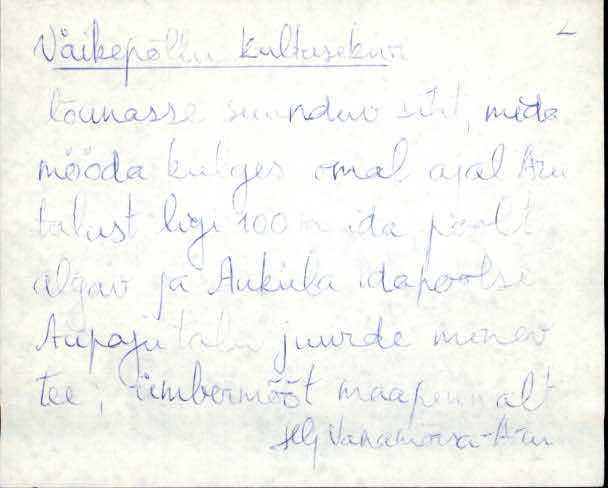 2
Väikepõllu kultusekivi
lõunasse suunduv siht, mida
mööda kulges omal ajal Aru
talust ligi 100 m ida poolt
algav ja Auküla idapoolse
Aupaju talu juurde minev
tee; ümbermõõt maapinnalt
Vanamõisa-Aru